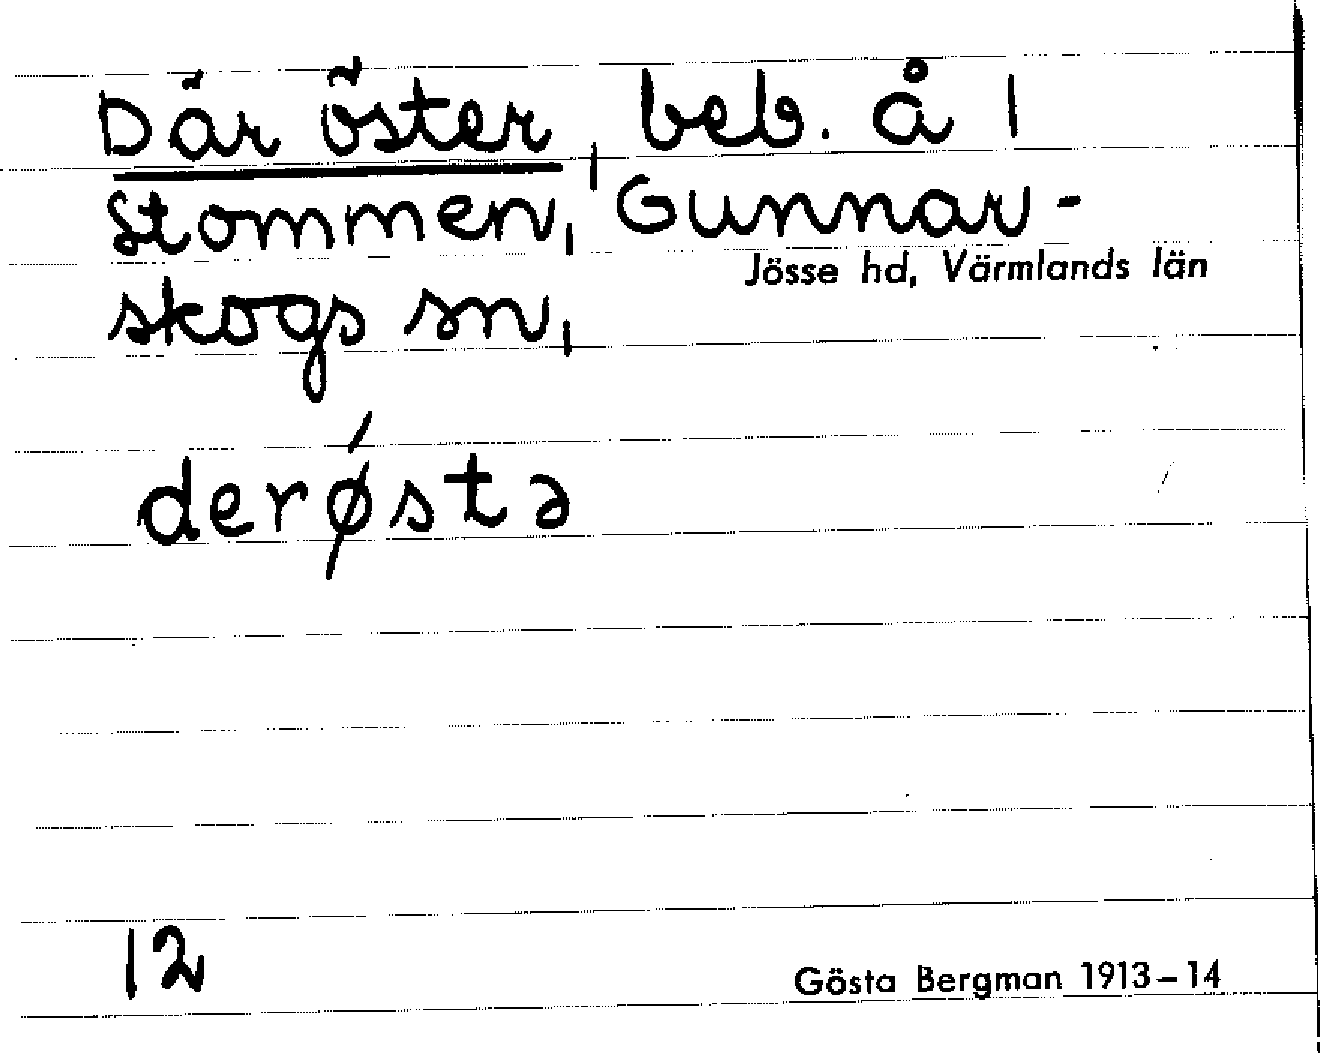 Där öster, beb. å 1
Stommen, Gunnar-
Jösse hd, Värmlands län
skogs sn,
derǿstə
12
Gösta Bergman 1913–14